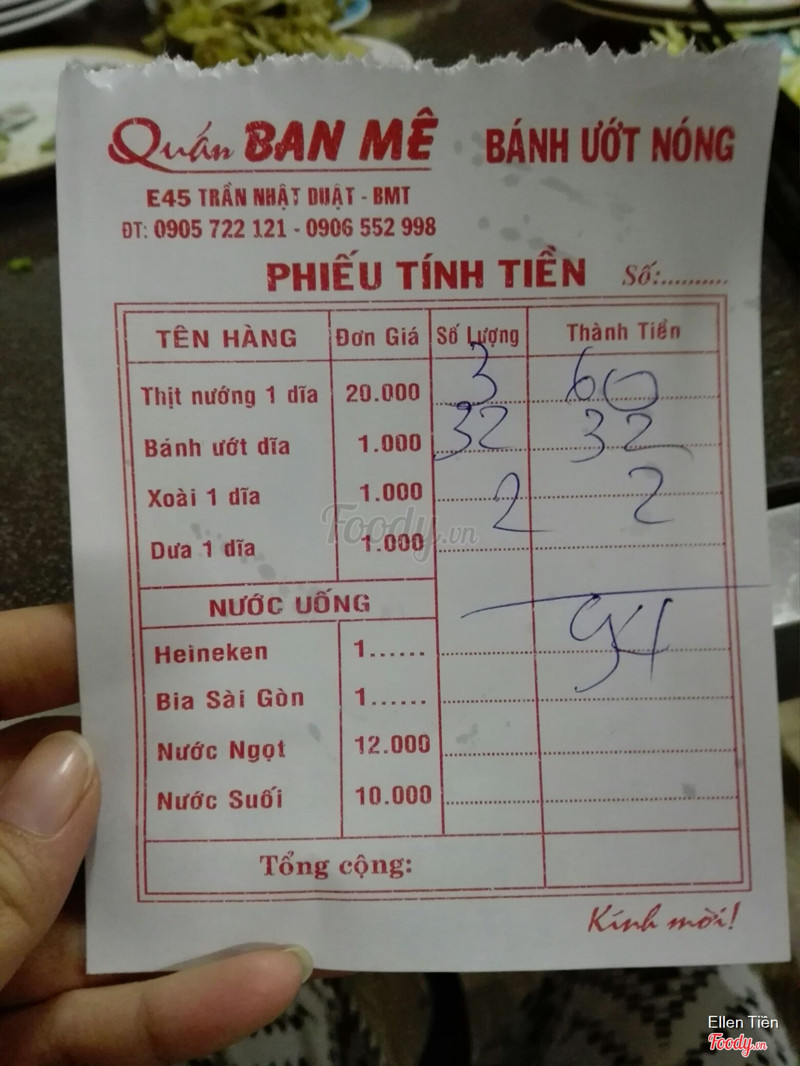 Quán BAN MÊ BÁNH ƯỚT NÓNG
E45 TRẦN NHẬT DUẬT - BMT
ĐT: 0905 722 121 - 0906 552 998
PHIẾU TÍNH TIỀN Số:..........
TÊN HÀNG Đơn Giá Số Lượng Thành Tiền
Thịt nướng 1 dĩa 20.000 3 60
Bánh ướt dĩa 1.000 32 32
Xoài 1 dĩa 1.000 2 2
Foody.vn
Dưa 1 dĩa 1.000
NƯỚC UỐNG
94
Heineken 1......
Bia Sài Gòn 1......
Nước Ngọt 12.000
Nước Suối 10.000
Tổng cộng:
Kính mời!
Ellen Tiên
Foody.vn